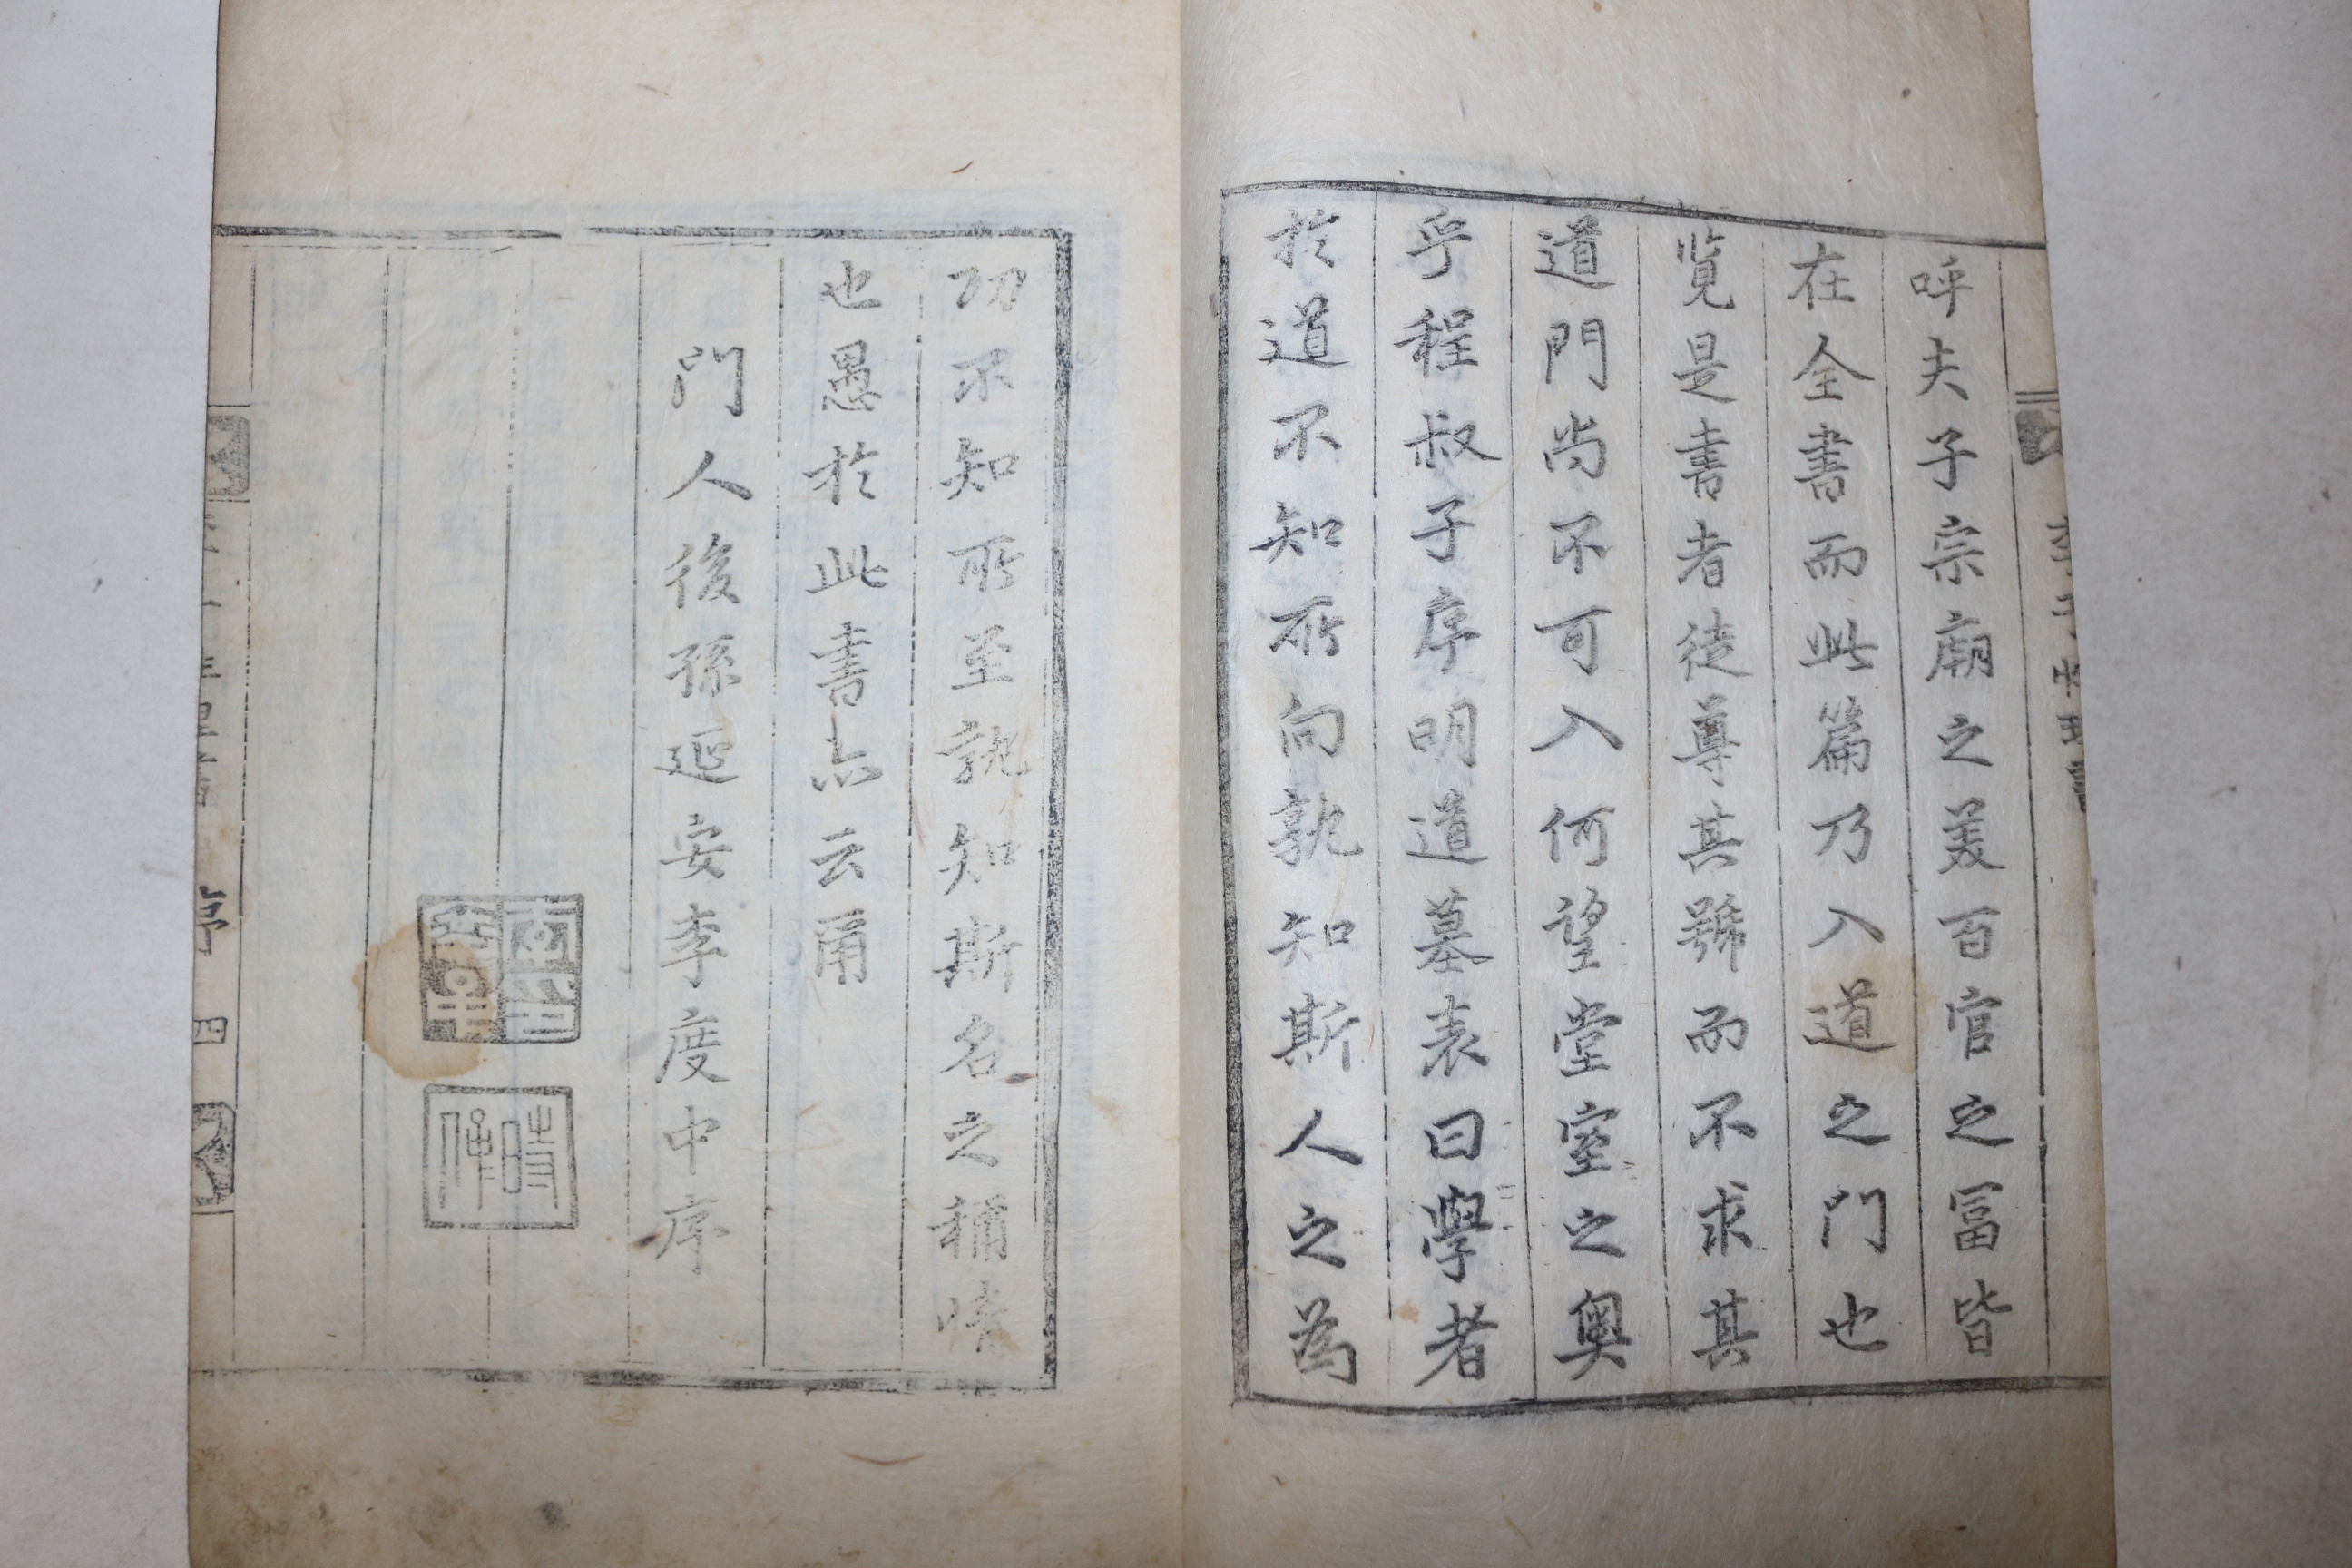 呼夫子宗廟之美百官之冨皆
在全書而此篇乃入道之門也
覧是書者徒尊其號而不求其
道門尚不可入何望堂室之奧
乎程叔子序明道墓表曰學者
於道不知所向孰知斯人之為
功不知所至孰知斯名之稱情
也愚於此書亦云爾
門人後孫延安李度中序
時偉
序 四